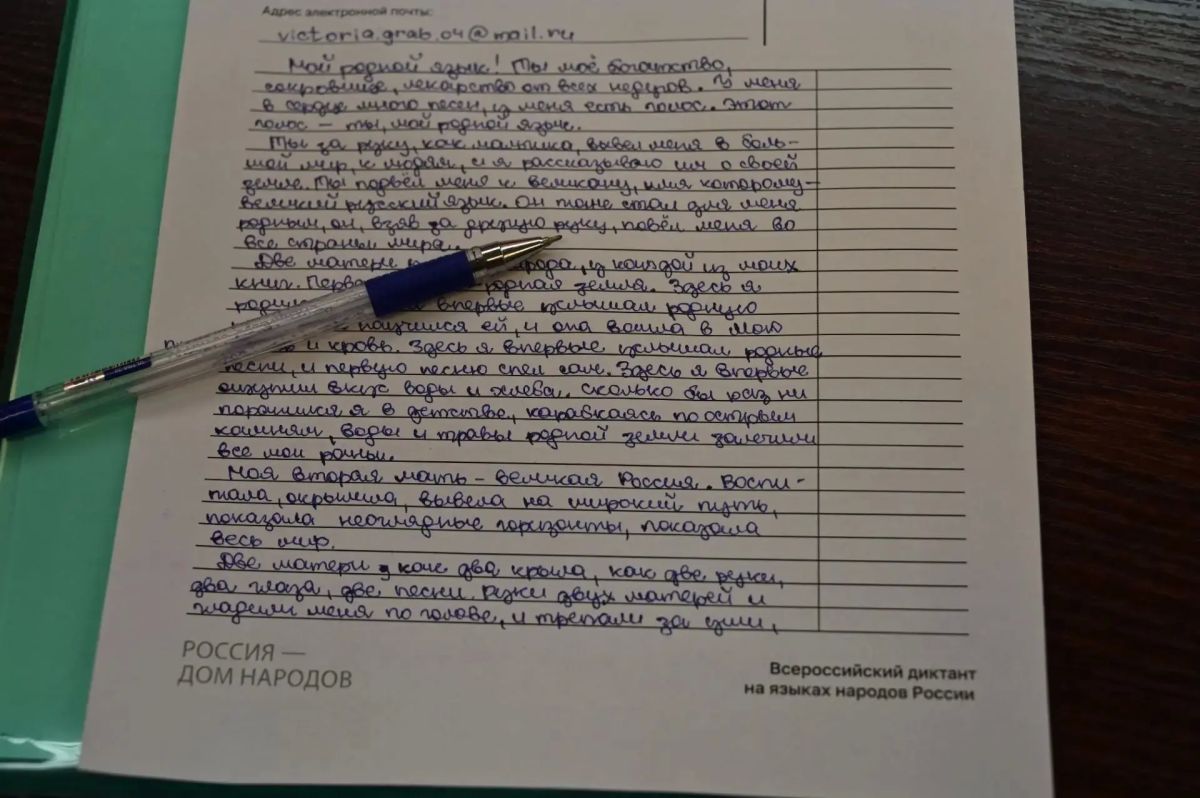 Адрес электронной почты:
victoria.grab.04@mail.ru
Мой родной язык! Ты моё богатство,
сокровище, лекарство от всех недугов. У меня
в сердце много песен, у меня есть голос. Этот
голос – ты, мой родной язык.
Ты за руку, как мальчика, вывел меня в боль-
шой мир, к людям, и я рассказываю им о своей
земле. Ты подвёл меня к великану, имя которому –
великий русский язык. Он тоже стал для меня
родным, он, взяв за другую руку, повёл меня во
все страны мира.
Две матери у народа, у каждой из моих
книг. родная земля. Здесь я
впервые услышал родную
научился ей, и она вошла в мою
и кровь. Здесь я впервые услышал родные
песни, и первую песню спел сам. Здесь я впервые
ощутил вкус воды и хлеба. Сколько бы раз ни
поранился я в детстве, карабкаясь по острым
камням, воды и травы родной земли залечили
все мои раны.
Моя вторая мать – великая Россия. Воспи-
тала, окрылила, вывела на широкий путь,
показала неоглядные горизонты, показала
весь мир.
Две матери, как два крыла, как две руки,
два глаза, две песни. Руки двух матерей и
гладили меня по голове, и трепали за уши,
РОССИЯ —
ДОМ НАРОДОВ
Всероссийский диктант
на языках народов России